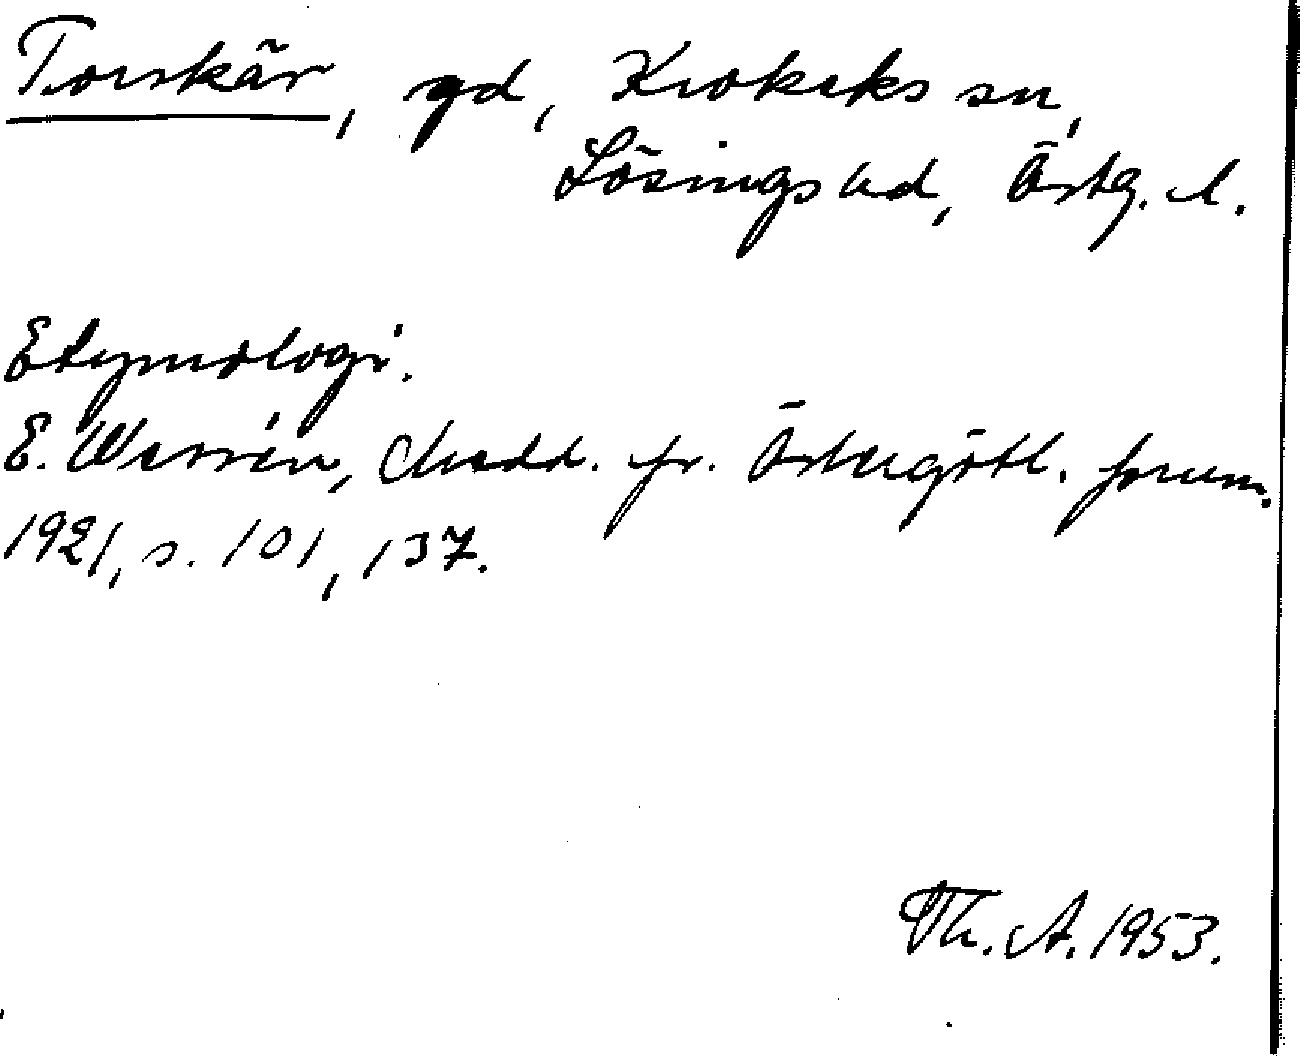 Torskär, gd, Krokeks sn,
Lösings hd, Östg. l.
Etymologi.
E. Wessén, Medd. fr. Östergötl. fornm.
1921, s. 101, 137.
Th. A. 1953.